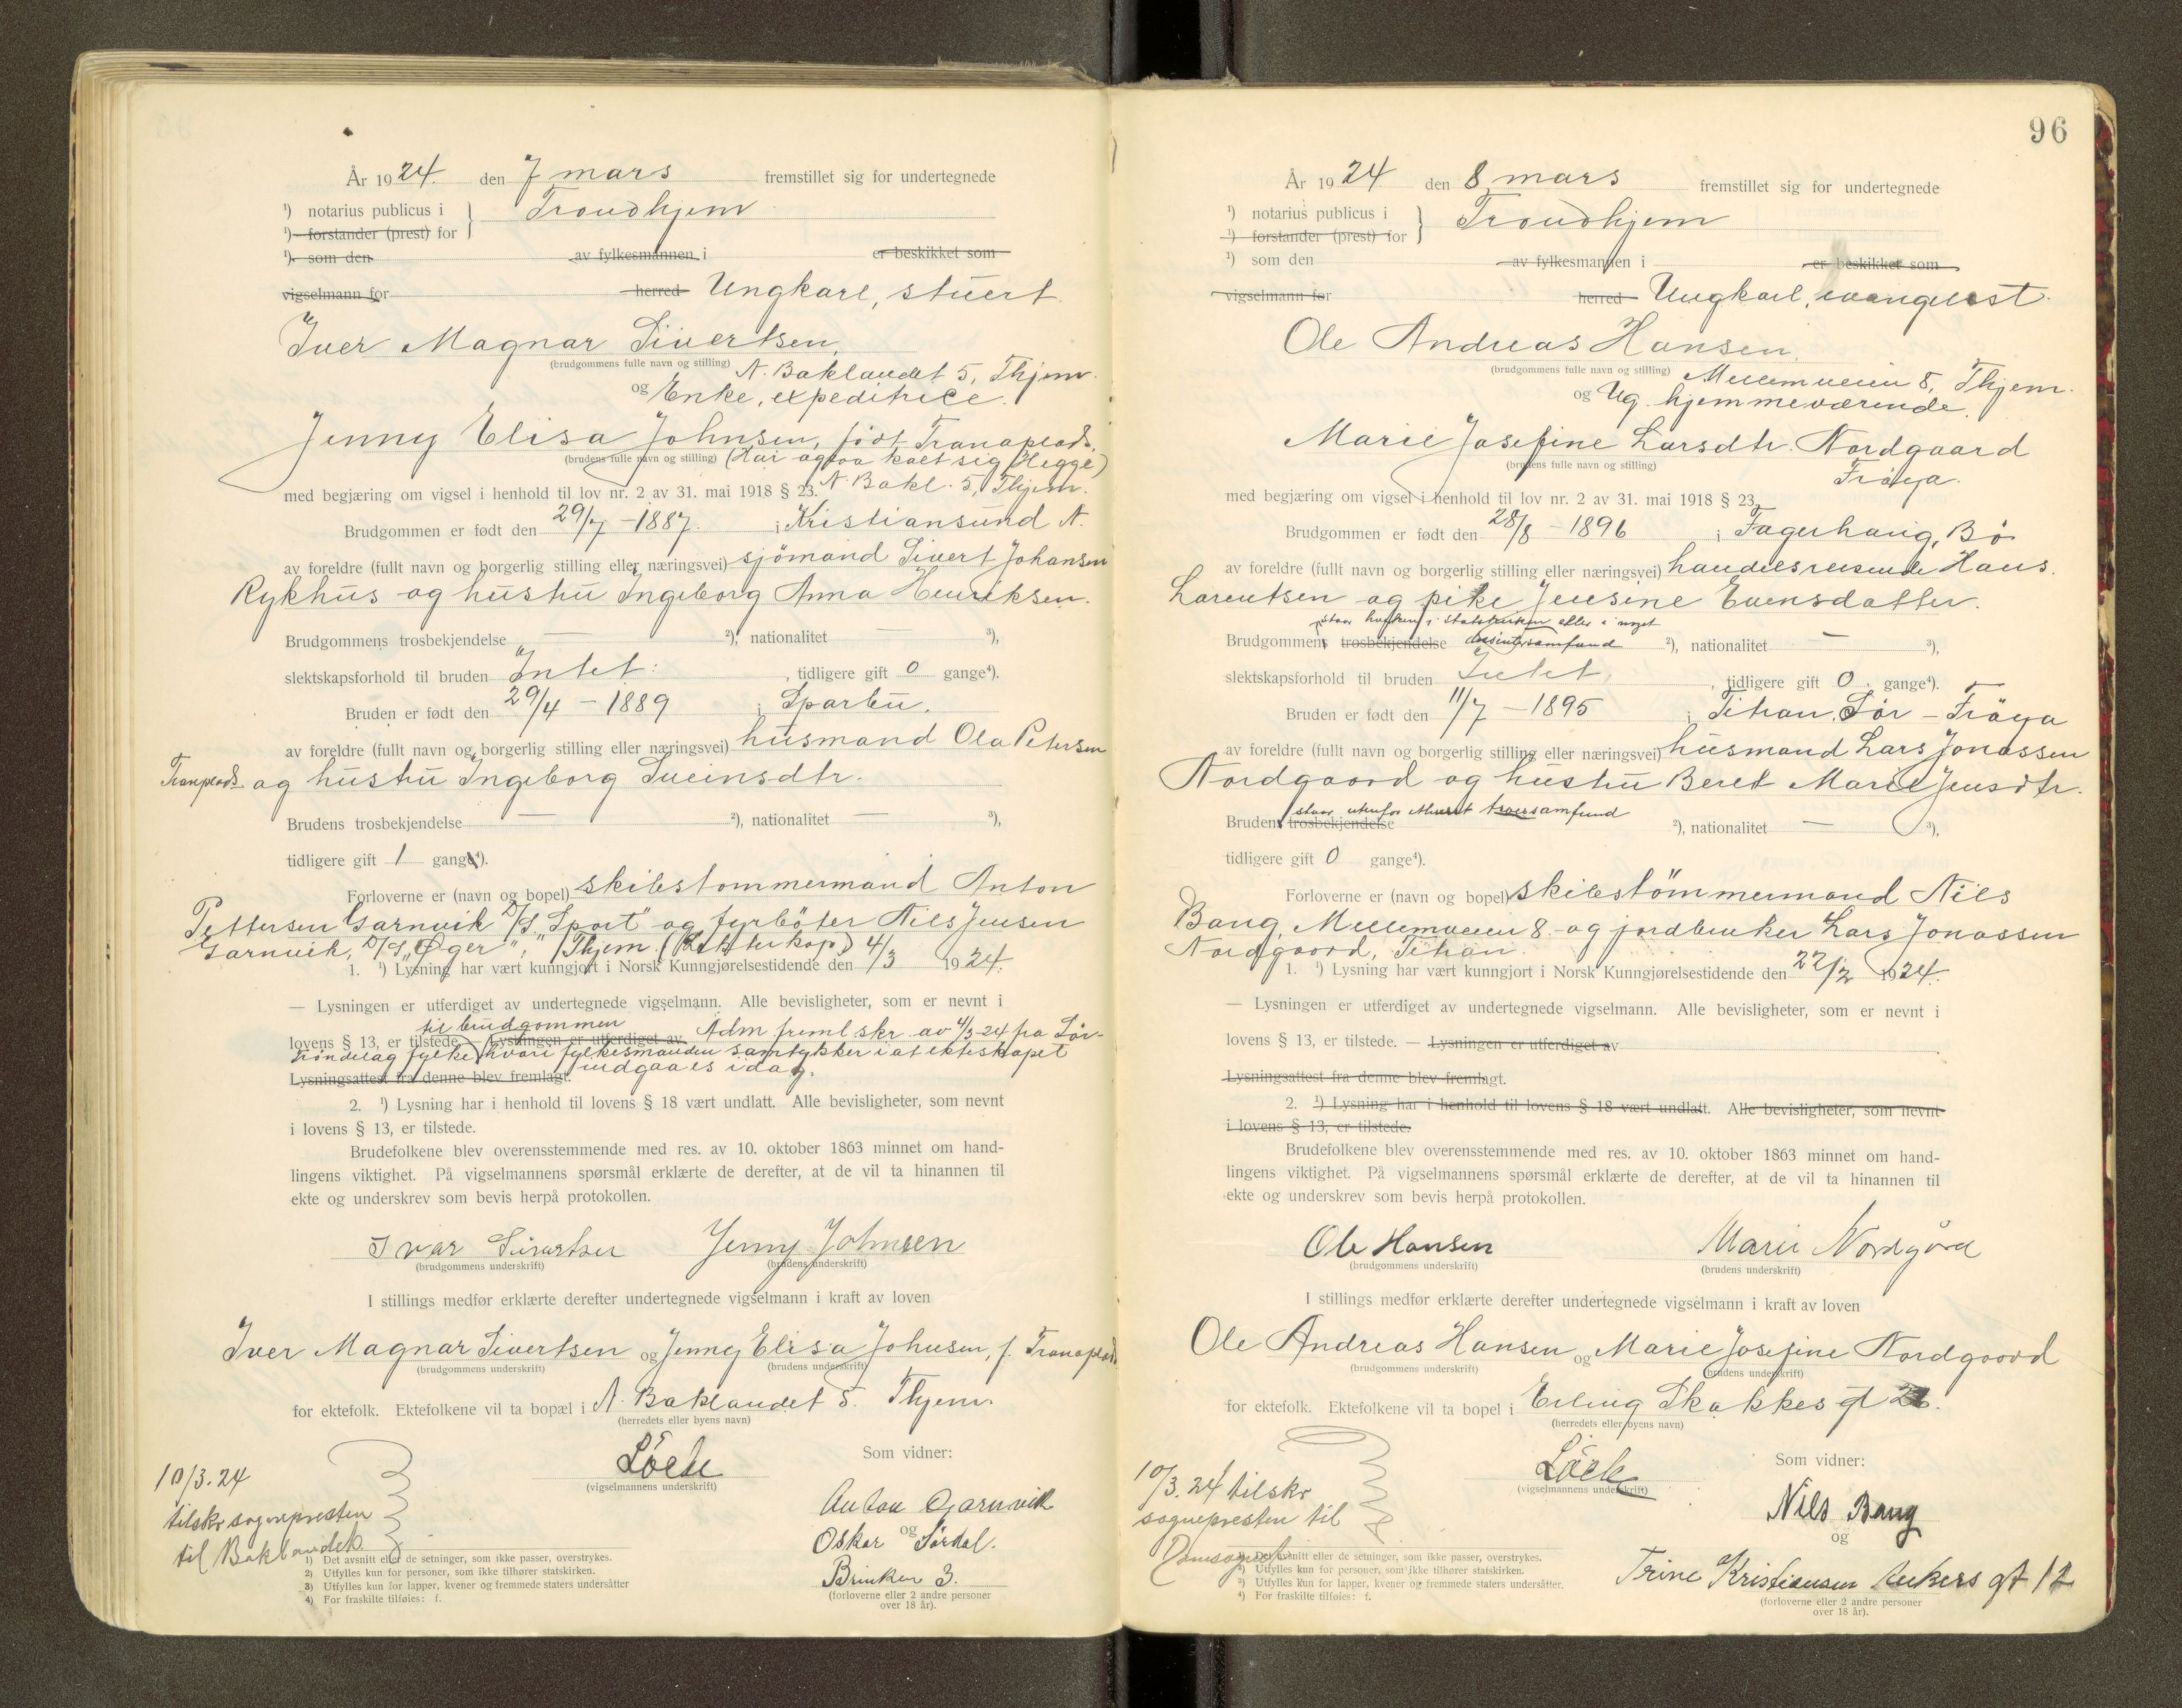 År 1924. den 7 mars fremstillet sig for undertegnede
¹) notarius publicus i } Trondhjem
¹) forstander (prest) for
¹) som den av fylkesmannen i er beskikket som
vigselmann for herred Ungkarl, stuert
Iver Magnar Sivertsen,
(brudgommens fulle navn og stilling) N. Baklandet 5, Thjem.
og Enke, expeditrice.
Jenny Elisa Johnsen, født Tranaplads.
(brudens fulle navn og stilling) (Har ogsaa kalt sig Hegge)
med begjæring om vigsel i henhold til lov nr. 2 av 31. mai 1918 § 23. N. Bakl. 5, Thjem.
Brudgommen er født den 29/7 - 1887. i Kristiansund N.
av foreldre (fullt navn og borgerlig stilling eller næringsvei) sjömand Sivert Johansen
Rykhus og hustru Ingeborg Anna Henriksen.
Brudgommens trosbekjendelse — ²), nationalitet — ³),
slektskapsforhold til bruden Intet: , tidligere gift 0 gange⁴).
Bruden er født den 29/4 - 1889 i Sparbu.
av foreldre (fullt navn og borgerlig stilling eller næringsvei) husmand Ola Petersen
Tranplads og hustru Ingeborg Sveinsdtr.
Brudens trosbekjendelse — ²), nationalitet — ³),
tidligere gift 1 gange⁴).
Forloverne er (navn og bopel) skibstømmermand Anton
Pettersen Garnvik D/S "Sport" og fyrböter Nils Jensen
Garnvik, D/S "Øger", Thjem. 4/3 1924.
1. ¹) Lysning har vært kunngjort i Norsk Kunngjørelsestidende den
— Lysningen er utferdiget av undertegnede vigselmann. Alle bevisligheter, som er nevnt i
til brudgommen
lovens § 13, er tilstede. — Lysningen er utferdiget av Adm freml skr. av 4/3-24 fra Sør-
Trøndelag fylke hvori fylkesmanden samtykker i at ekteskapet
Lysningsattest fra denne blev fremlagt. indgaaes idag.
2. ¹) Lysning har i henhold til lovens § 18 vært undlatt. Alle bevisligheter, som nevnt
i lovens § 13, er tilstede.
Brudefolkene blev overensstemmende med res. av 10. oktober 1863 minnet om hand-
lingens viktighet. På vigselmannens spørsmål erklærte de derefter, at de vil ta hinannen til
ekte og underskrev som bevis herpå protokollen.
Ivar Sivertsen Jenny Johnsen
(brudgommens underskrift) (brudens underskrift)
I stillings medfør erklærte derefter undertegnede vigselmann i kraft av loven
Iver Magnar Sivertsen og Jenny Elisa Johnsen, f. Tranaplads
(brudgommens underskrift) (brudens underskrift)
for ektefolk. Ektefolkene vil ta bopæl i N. Baklandet 5. Thjem.
(herredets eller byens navn)
Som vidner:
(vigselmannens underskrift)
10/3.24
tilskr sognepresten
til Baklandet
Anton Garnvik
og
Oskar Sørdal.
Brinken 3.
(forloverne eller 2 andre personer
over 18 år).
1) Det avsnitt eller de setninger, som ikke passer, overstrykes.
2) Utfylles kun for personer, som ikke tilhører statskirken.
3) Utfylles kun for lapper, kvener og fremmede staters undersåtter
4) For fraskilte tilføies: f.
96
År 1924 den 8 mars fremstillet sig for undertegnede
¹) notarius publicus i } Trondhjem
¹) forstander (prest) for
¹) som den av fylkesmannen i er beskikket som
vigselmann for herred Ungkarl, evangelist.
Ole Andreas Hansen,
(brudgommens fulle navn og stilling) Mellemveien 8, Thjem.
og Ug. hjemmeværende.
Marie Josefine Larsdtr. Nordgaard
(brudens fulle navn og stilling) Fröya.
med begjæring om vigsel i henhold til lov nr. 2 av 31. mai 1918 § 23.
Brudgommen er født den 28/8 - 1896 i Fagerhaug, Bö
av foreldre (fullt navn og borgerlig stilling eller næringsvei) handelsreisende Hans
Larentsen og pike Jensine Evensdatter.
staar hverken i statskirken eller i noget
Brudgommens trosbekjendelse dissentersamfund ²), nationalitet — ³),
slektskapsforhold til bruden Intet, , tidligere gift 0. gange⁴).
Bruden er født den 11/7 - 1895 i Titran, Sör-Fröya
av foreldre (fullt navn og borgerlig stilling eller næringsvei) husmand Lars Jonassen
Nordgaard og hustru Beret Marie Jensdtr.
staar utenfor ethvert trossamfund
Brudens trosbekjendelse ²), nationalitet — ³),
tidligere gift 0 gange⁴).
Forloverne er (navn og bopel) skibstömmermand Nils
Bang, Mellemveien 8 - og jordbruker Lars Jonassen
Nordgaard, Titran.
1. ¹) Lysning har vært kunngjort i Norsk Kunngjørelsestidende den 22/2 1924.
— Lysningen er utferdiget av undertegnede vigselmann. Alle bevisligheter, som er nevnt i
lovens § 13, er tilstede. — Lysningen er utferdiget av
Lysningsattest fra denne blev fremlagt.
2. ¹) Lysning har i henhold til lovens § 18 vært undlatt. Alle bevisligheter, som nevnt
i lovens § 13, er tilstede.
Brudefolkene blev overensstemmende med res. av 10. oktober 1863 minnet om hand-
lingens viktighet. På vigselmannens spørsmål erklærte de derefter, at de vil ta hinannen til
ekte og underskrev som bevis herpå protokollen.
Ole Hansen Marie Nordgård
(brudgommens underskrift) (brudens underskrift)
I stillings medfør erklærte derefter undertegnede vigselmann i kraft av loven
Ole Andreas Hansen og Marie Josefine Nordgaard
(brudgommens underskrift) (brudens underskrift)
for ektefolk. Ektefolkene vil ta bopel i Erling Skakkes gt
(herredets eller byens navn)
Som vidner:
(vigselmannens underskrift)
10/3.24 tilskr
sognepresten til
Domsognet
Nils Bang
og
Trine Kristiansen Ankers gt 12
(forloverne eller 2 andre personer
over 18 år).
¹) Det avsnitt eller de setninger, som ikke passer, overstrykes.
²) Utfylles kun for personer, som ikke tilhører statskirken.
³) Utfylles kun for lapper, kvener og fremmede staters undersåtter.
⁴) For fraskilte tilføies: f.